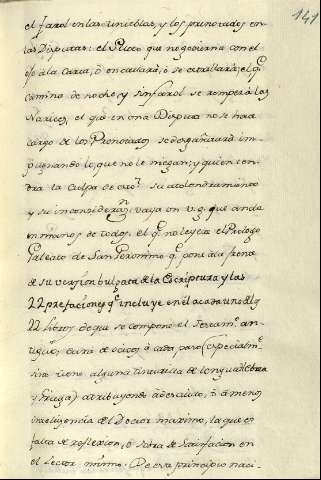 141
el farol en las tinieblas, y los prenotados en
las Disputas: el Piloto que no gobierna con el
ojo à la Carta, ò encallarà, ò se estrellarà; el q.e
camina de noche, y sin farol se romperà las
Narices, el que en una Disputa no se hace
cargo de los Prenotados se desgañitarà im-
pugnando lo que no le niegan; y quien ten-
drà la Culpa de esto? su atolondramiento
y su inconsideraz.n vaya un v.g. que anda
en manos de todos, el q.e no leyere el Prologo
Galeato de San Geronimo q.e pone à la frente
de su version bulgata de la Escriptura y las
22 prefaciones q.e incluye en èl a cada uno de los
22 Libros de que se compone el Testam.to an-
tiguo, darà de ocicos à cada paso (especialm.te
si no tiene alguna tinturilla de lengua Hebrea
y Griega) atribuyendo à descuido, ò à menos
inteligencia del Doctor maximo, lo que es
falta de reflexion, ò sobra de satisfacion en
el Lector mismo. De este principio naci-